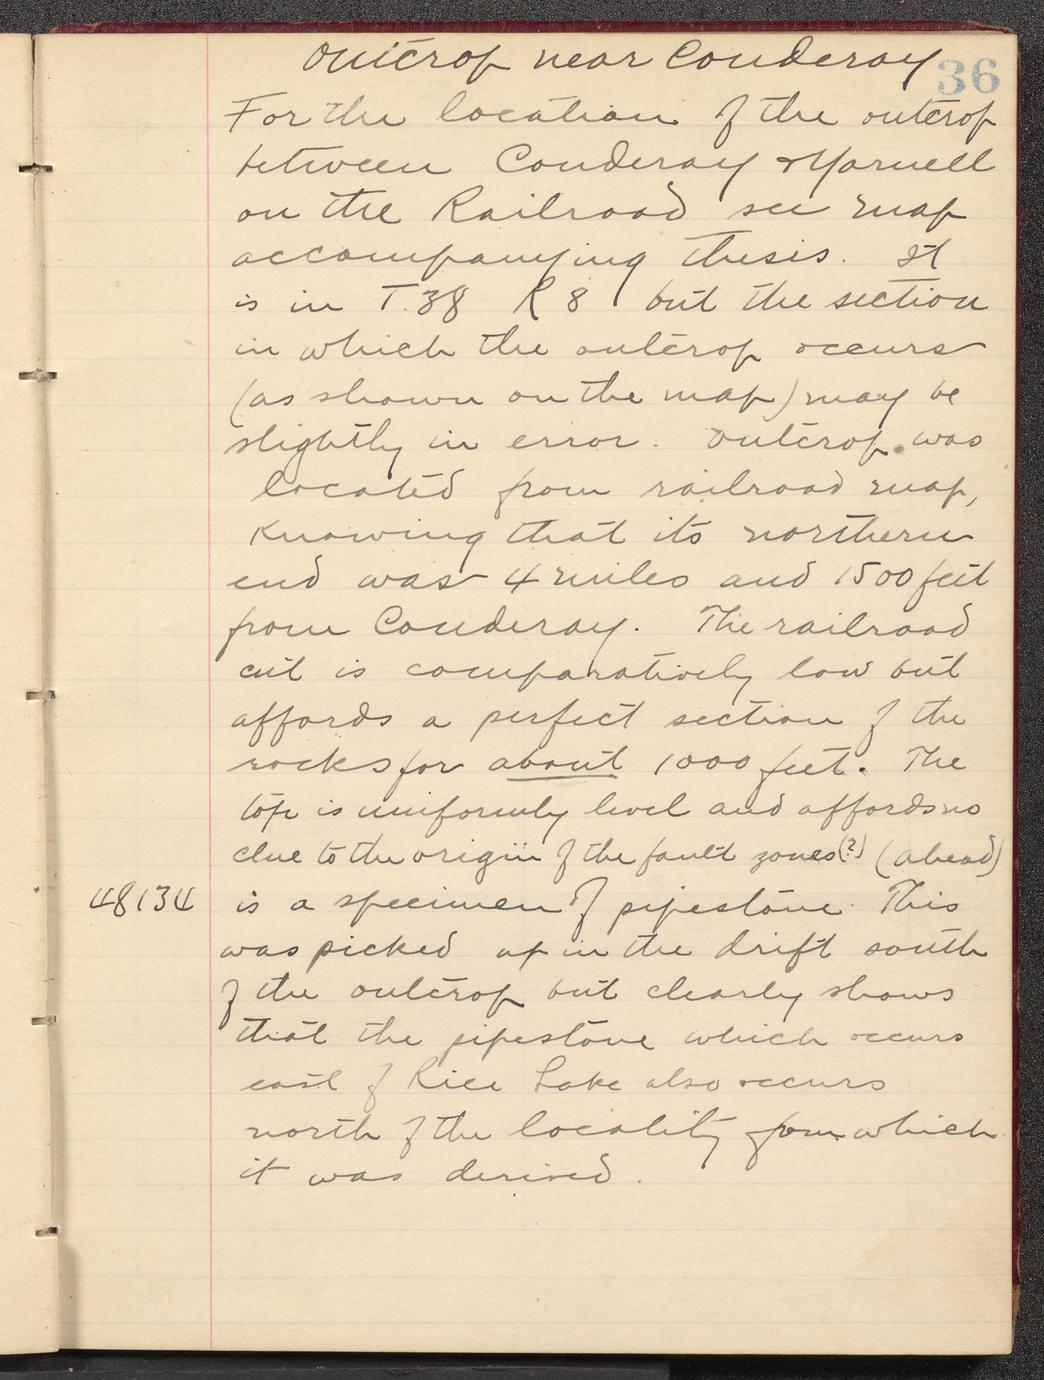 Outcrop near Couderay
36
For the location of the outcrop
between Couderay & Yarnell
on the Railroad see map
accompanying thesis. It
is in T.38 R 8 but the section
in which the outcrop occurs
(as shown on the map) may be
slightly in error. Outcrop was
located from railroad map,
knowing that its northern
end was 4 miles and 1500 feet
from Couderay. The railroad
cut is comparatively low but
affords a perfect section of the
rocks for about 1000 feet. The
top is uniformly level and affords no
clue to the origin of the fault zones(?) (ahead)
48134 is a specimen of pipestone. This
was picked up in the drift south
of the outcrop but clearly shows
that the pipestone which occurs
east of Rice Lake also occurs
north of the locality from which
it was derived.